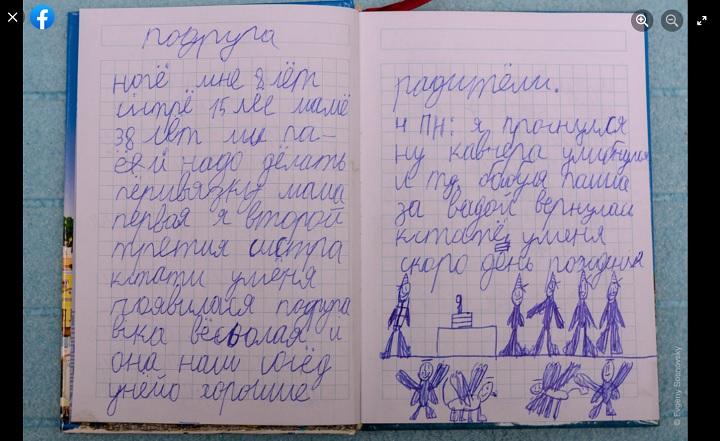 подруга
ногё мне 8 лёт
систрё 15 лёт мамё
38 лет ми па-
ёё и надо дёлать
пёривязку мама
первая я второй
третия систра
кстати умёня
появилася подруга
вика вёёсолая и
она наш сосёд
унёйо хорошие
радитёли.
4 ПН: я проснулся
ну как вчера
и тд, бабуля пашла
за вадой вернулась
кстатё уменя
скоро день рождения
9
© Evgeny Sosnovsky